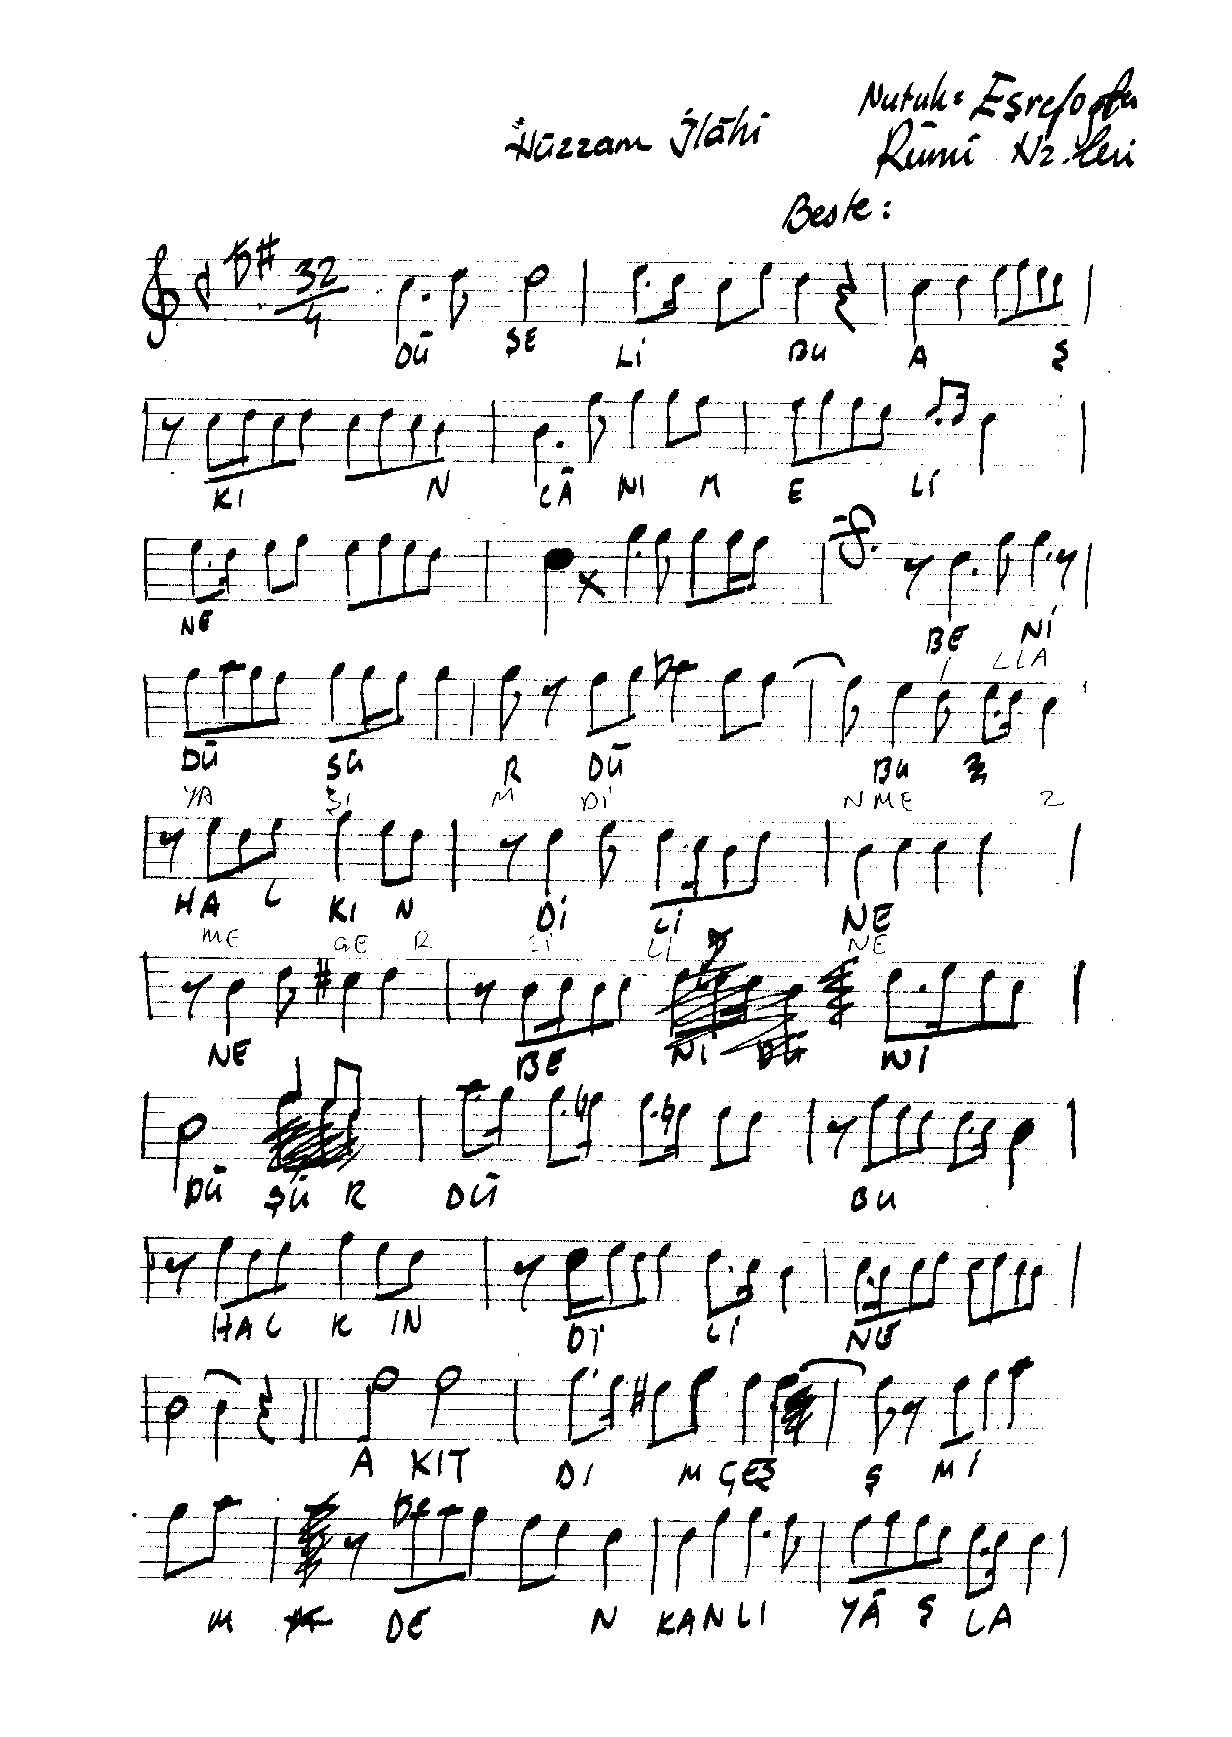 Nutuk: Eşrefoğlu
Hüzzam İlâhi
Rûmi Hz.leri
Beste:
32
4
DÜ ŞE Lİ BU A Ş
KI N CÂ NI M E Lİ
NE BE Nİ
İ LLA
DÜ ŞÜ R DÜ BU
YA Şİ M Dİ N ME Z
HA L KI N Dİ Lİ NE
ME GE R Lİ NE
NE BE Nİ Nİ
DÜ ŞÜ R DÜ BU
HA L K IN Dİ Lİ NE
A KIT DI M ÇEŞ Ş Mİ
M DE N KAN LI YÂ Ş LA